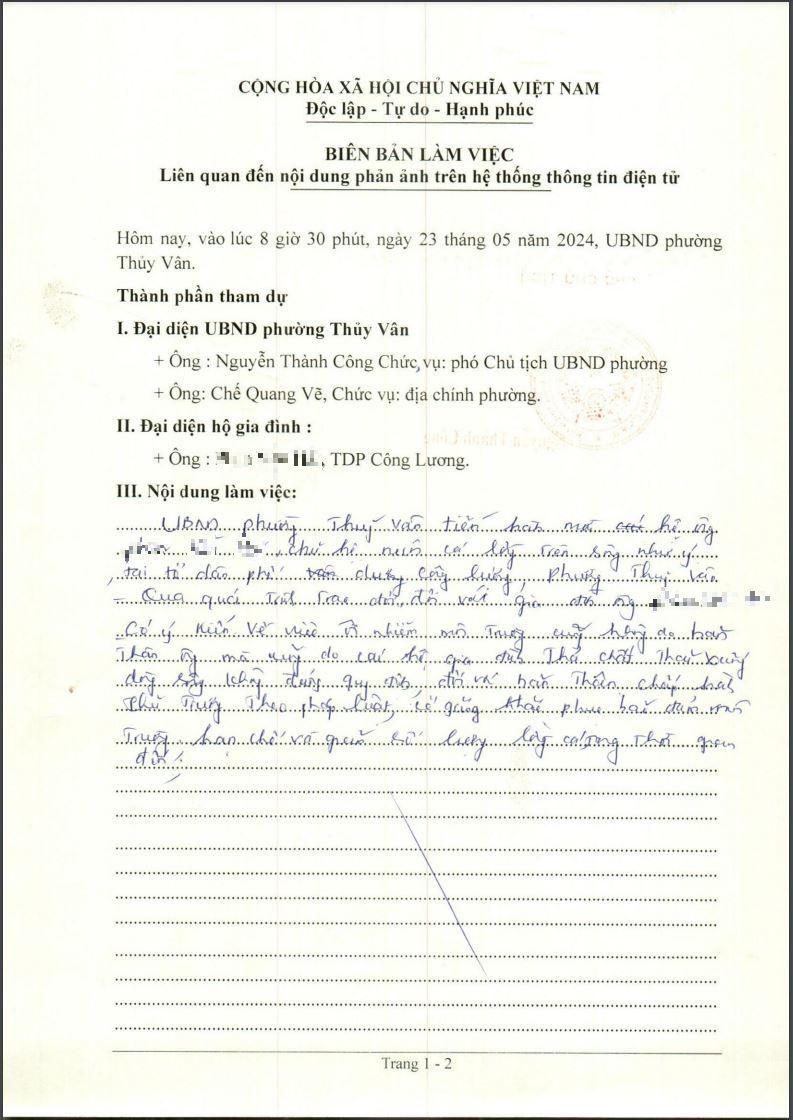 CỘNG HÒA XÃ HỘI CHỦ NGHĨA VIỆT NAM
Độc lập - Tự do - Hạnh phúc
BIÊN BẢN LÀM VIỆC
Liên quan đến nội dung phản ảnh trên hệ thống thông tin điện tử
Hôm nay, vào lúc 8 giờ 30 phút, ngày 23 tháng 05 năm 2024, UBND phường
Thủy Vân.
Thành phần tham dự
I. Đại diện UBND phường Thủy Vân
+ Ông : Nguyễn Thành Công Chức vụ: phó Chủ tịch UBND phường
+ Ông: Chế Quang Vẽ, Chức vụ: địa chính phường.
II. Đại diện hộ gia đình :
+ Ông : , TDP Công Lương.
III. Nội dung làm việc:
UBND phường Thuỷ Vân tiến hành mời hộ ông
, chủ hộ nuôi cá lồng trên sông như ý
tại tổ dân phố công lương, phường Thuỷ Vân
- Qua quá trình trao đổi, đối với gia đình ông
Có ý kiến về việc ô nhiễm môi trường cũng không do bản
thân ông mà cũng do các hộ gia đình thả chất thải xuống
dòng sông không đúng quy định, đối với bản thân chấp hành
chủ trương theo pháp luật, cố gắng khắc phục bảo đảm môi
trường, hạn chế và giảm số lượng lồng cá trong thời gian
đến.
Trang 1 - 2